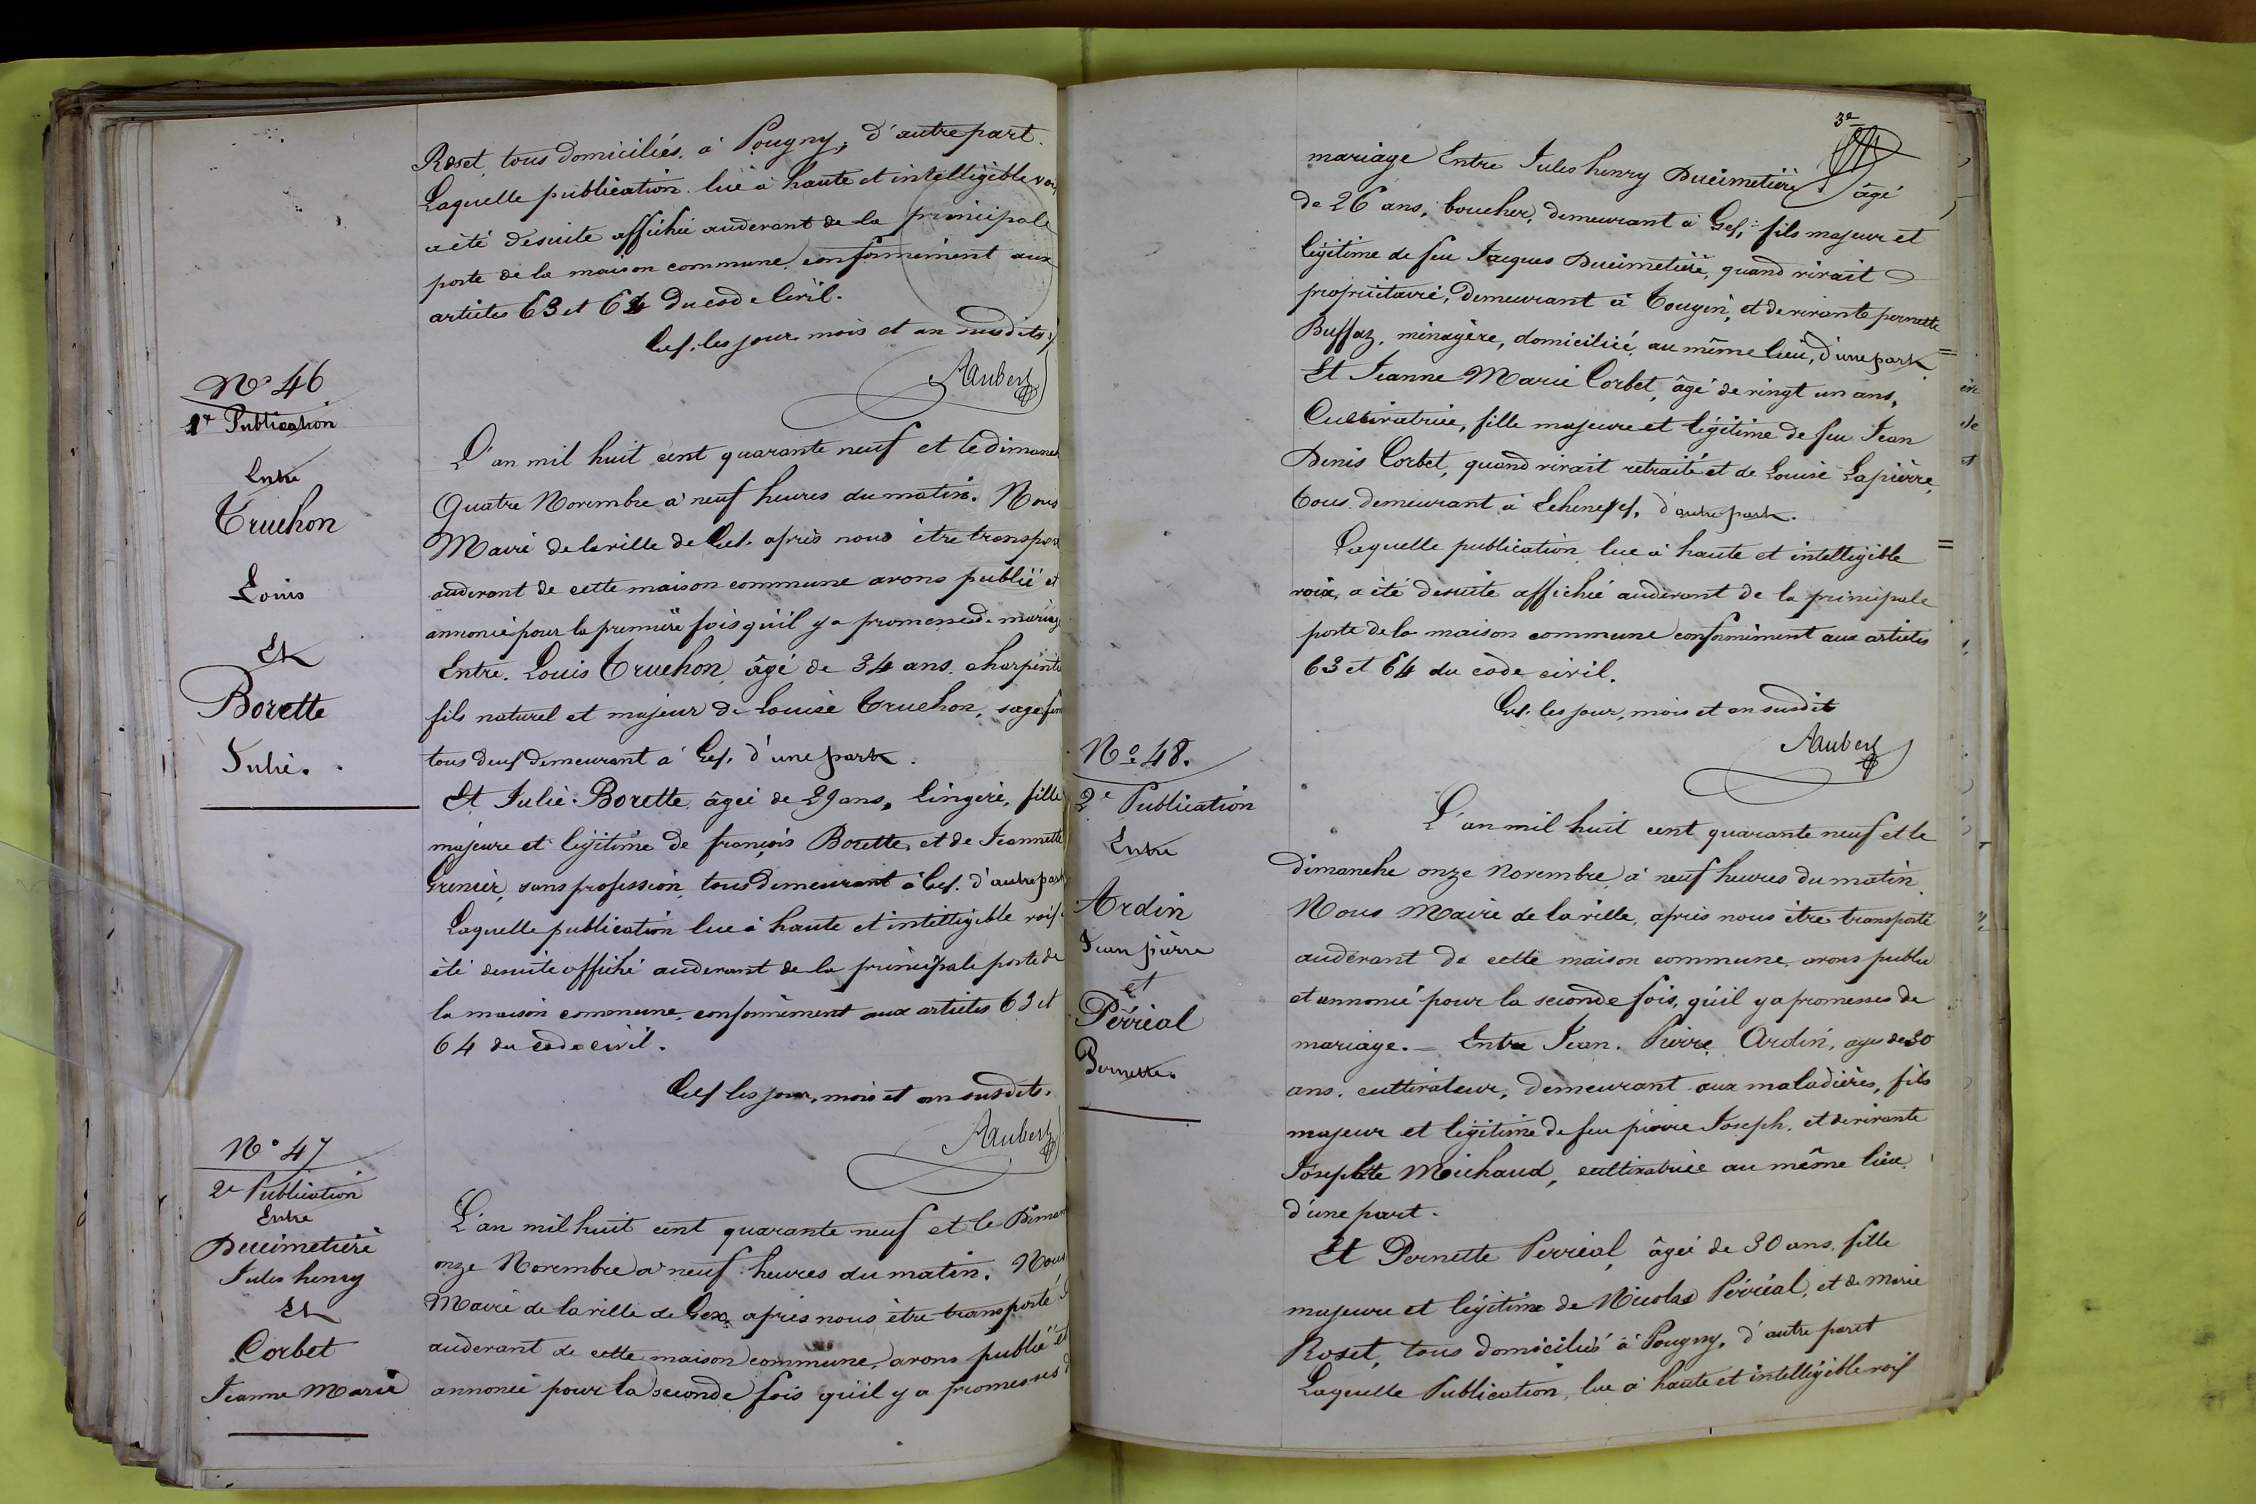 Roset, tous domiciliés à Pougny, d'autre part.
Laquelle publication lue à haute et intelligible voix
a été desuite affichée audevant de la principale
porte de la maison commune, conformément aux
articles 63 et 64 du code Civil.
Gex, les jour, mois et an susdits
Aubert
N° 46
1re Publication
Entre
Truchon
Louis
Et
Borette
Julie.
L'an mil huit cent quarante neuf et le dimanch
Quatre Novembre à neuf heures du matin. Nous
Maire de la ville de Gex après nous être transpor
audevant de cette maison commune avons publié et
annoncé pour la première fois qu'il y a promesse de mariage
Entre. Louis Truchon, âgé de 34 ans, charpenti
fils naturel et majeur de Louise Truchon, sage fem
tous deux demeurant à Gex, d'une part.
Et Julie Borette, âgée de 29 ans, lingère, fille
majeure et légitime de françois Borette, et de Jeannette
Grenier, sans profession, tous demeurant à Gex. d'autre part
Laquelle publication lue à haute et intelligible voix a
été desuite affiché audevant de la principale porte de
la maison commune, conformément aux articles 63 et
64 du code civil.
Gex les jour, mois et an susdits.
Aubert
N° 47
2e Publication
Entre
Ducimetière
Jules henry
Et
Corbet
Jeanne Marie
L'an mil huit cent quarante neuf et le Diman
onze Novembre à neuf heures du matin. Nous
Maire de la ville de Gex, après nous être transporté
audevant de cette maison commune, avons publié et
annoncé pour la seconde fois qu'il y a promesses d
3e
mariage Entre Jules henry Ducimetière âgé
de 26 ans, boucher, demeurant à Gex, fils majeur et
légitime de feu Jacques Ducimetière, quand vivait
propriétaire, demeurant à Tougin, et de vivante pernette
Buffaz, ménagère, domiciliée au même lieu, d'une part
Et Jeanne Marie Corbet, âgé de vingt un ans,
Cultivatrice, fille majeure et légitime de feu Jean
Denis Corbet, quand vivait retraité et de Louise Lapierre,
tous demeurant à Echenevex, d'autre part.
Laquelle publication lue à haute et intelligible
voix, a été desuite affichée audevant de la principale
porte de la maison commune conformément aux articles
63 et 64 du code civil.
Gex les jour, mois et an susdits
Aubert
N° 48.
2e Publication
Entre
Ardin
Jean pierre
et
Perréal
Pernette.
L'an mil huit cent quarante neuf et le
dimanche onze novembre à neuf heures du matin.
Nous Maire de la ville, après nous être transporté
audevant de cette maison commune avons publié
et annoncé pour la seconde fois, qu'il y a promesses de
mariage. — Entre Jean. Pierre Ardin, agé de 30
ans, cultivateur, demeurant aux maladières, fils
majeur et légitime de feu pierre Joseph, et de vivante
Josephte Michaud, cultivatrice au même lieu,
d'une part.
Et Pernette Perréal, âgée de 30 ans, fille
majeure et légitime de Nicolas Perréal, et de Marie
Roset, tous domiciliés à Pougny, d'autre part
Laquelle Publication, lue à haute et intelligible voix